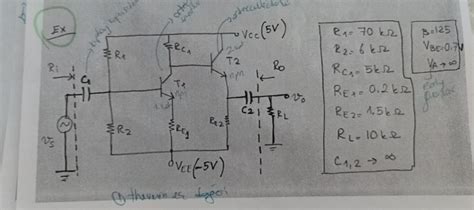 Ex
VCC (5V)
R1
RC1
T2
npn
Ri
C1
T1
npn
Ro
C2
vo
vs
R2
RE1
RE2
RL
VEE (-5V)
R1 = 70 kΩ
R2 = 6 kΩ
RC1 = 5 kΩ
RE1 = 0.2 kΩ
RE2 = 1.5 kΩ
RL = 10 kΩ
C1,2 → ∞
β = 125
VBE = 0.7V
VA → ∞